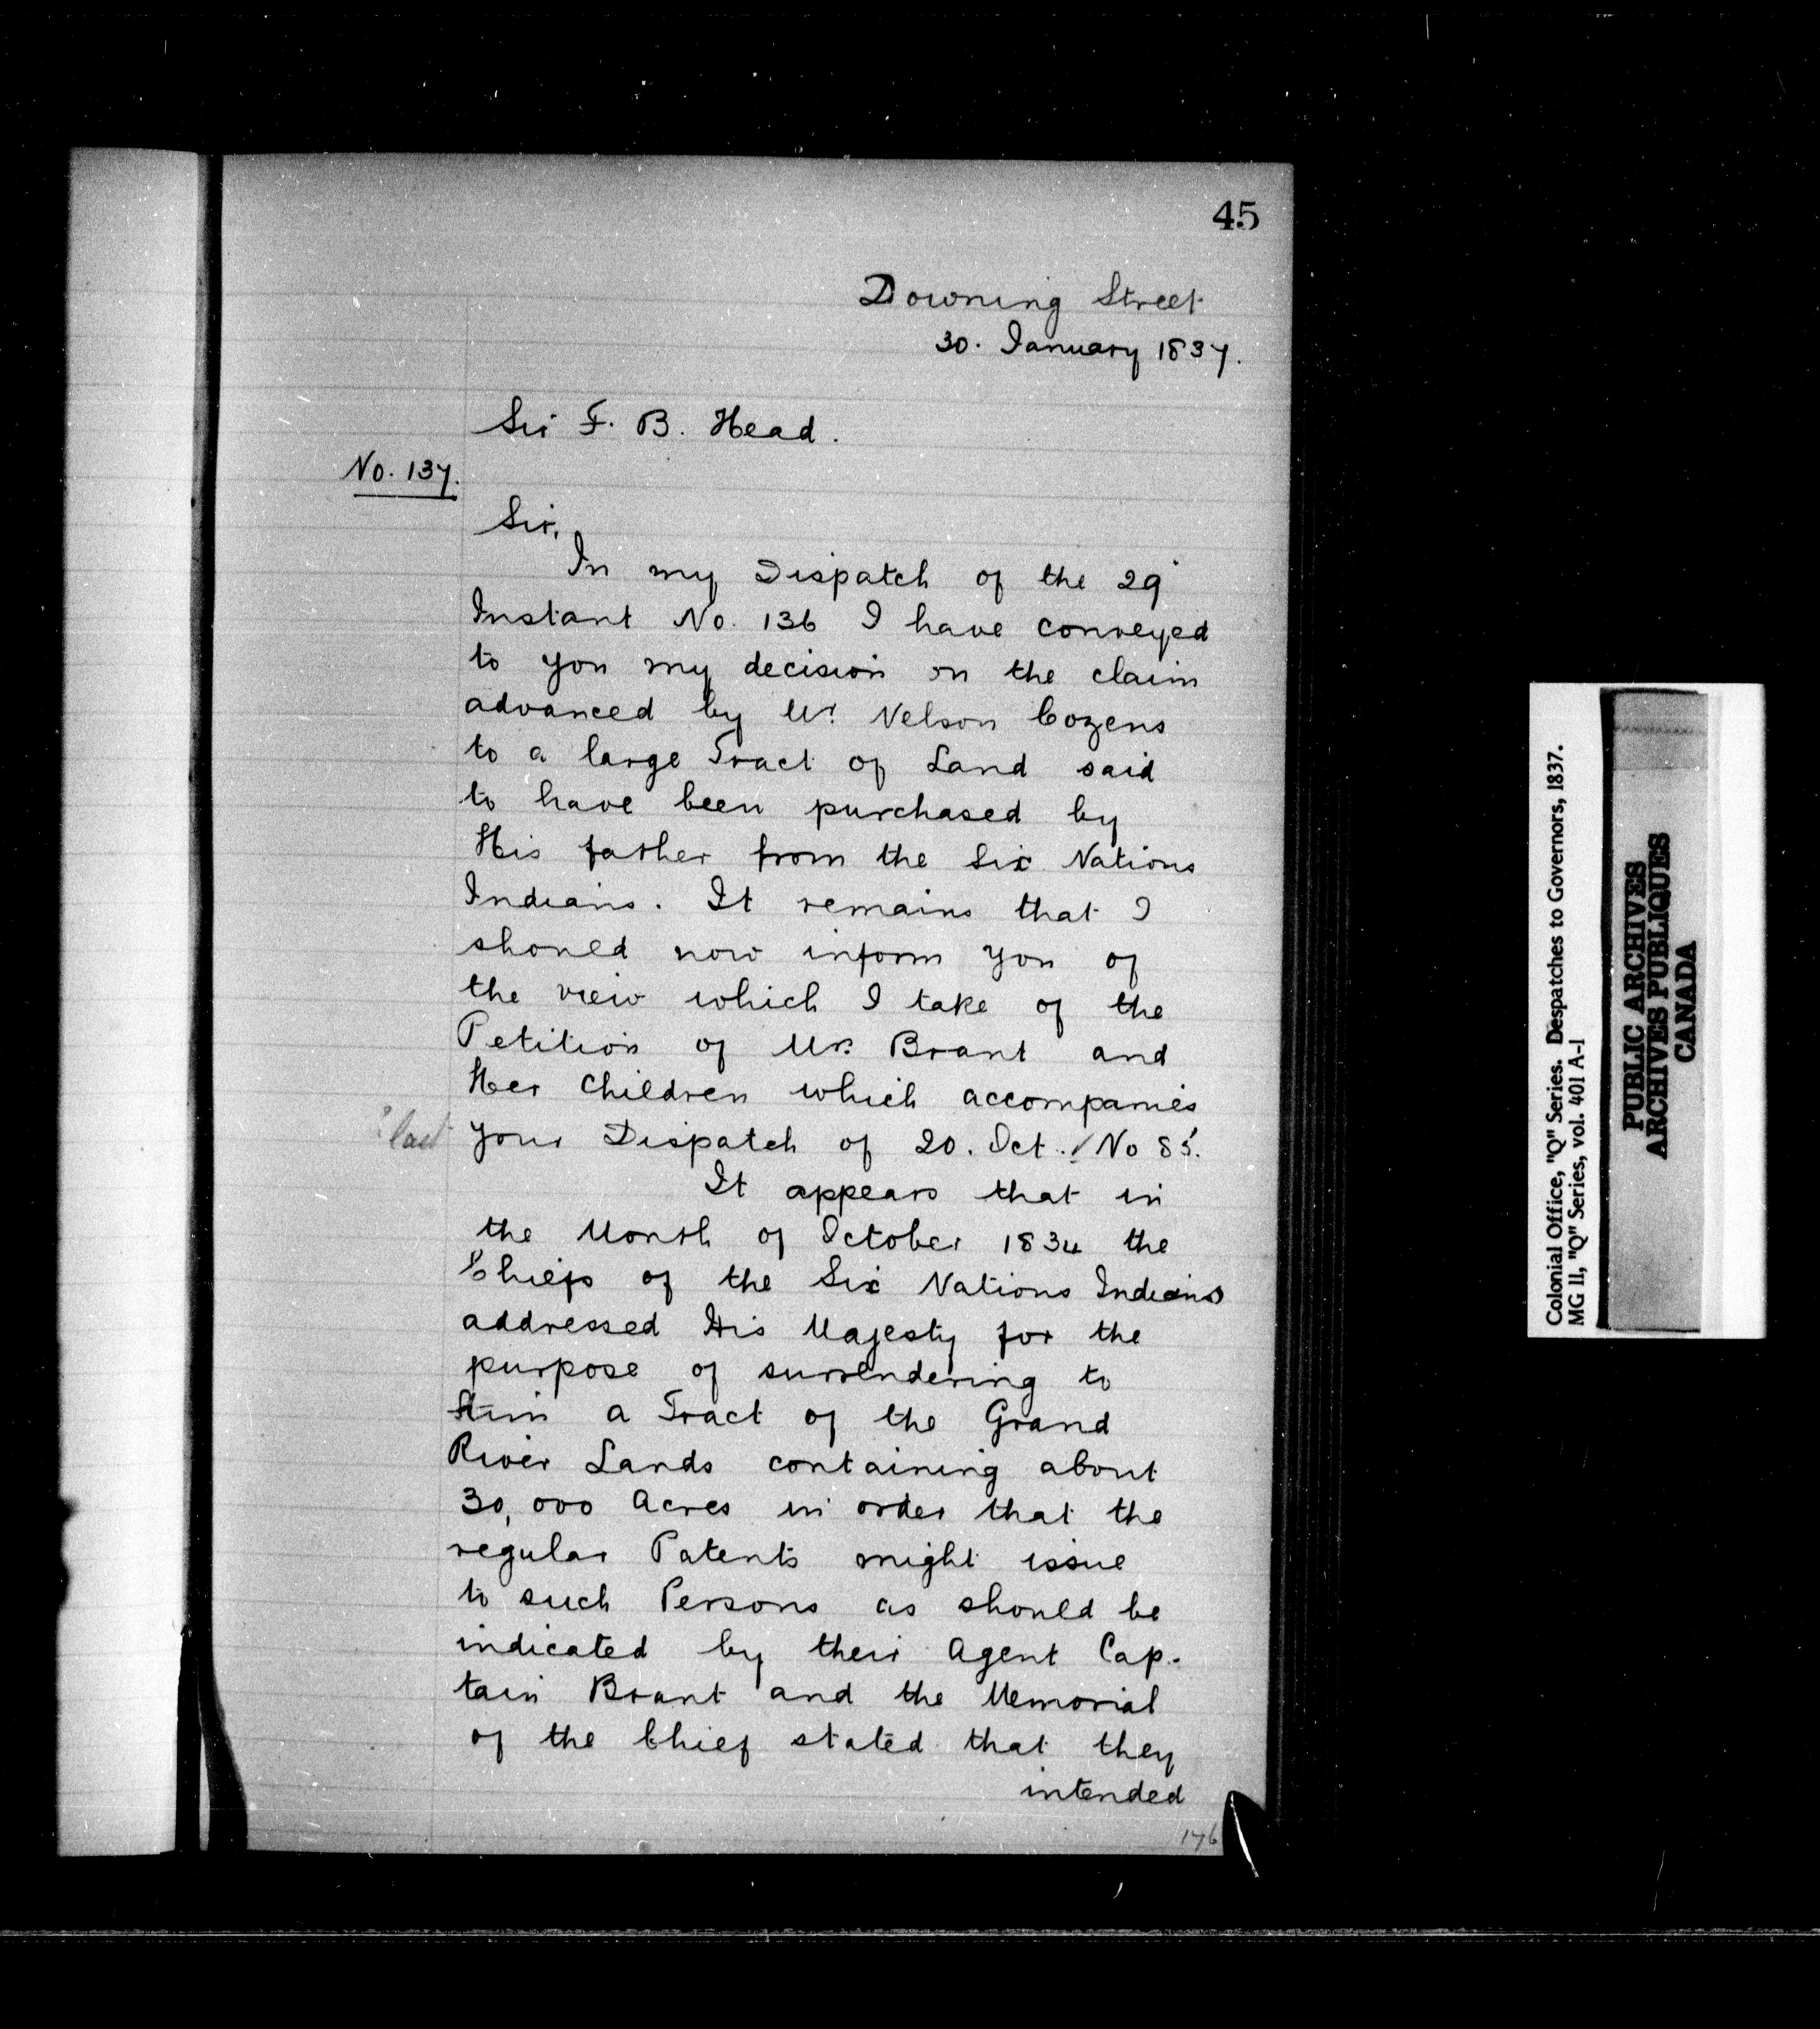 45
Downing Street
30. January 1837.
Sir F. B. Head.
No. 137.
Sir,
In my Dispatch of the 29
Instant No. 136 I have conveyed
to you my decision on the claim
advanced by Mr. Nelson Cozens
to a large Tract of Land said
to have been purchased by
His father from the Six Nations
Indians. It remains that I
should now inform you of
the view which I take of the
Petition of Mrs. Brant and
Her Children which accompanies
last
your Dispatch of 20. Oct. / No 85.
It appears that in
the Month of October 1834 the
Chiefs of the Six Nations Indians
addressed His Majesty for the
purpose of surrendering to
Him a Tract of the Grand
River Lands containing about
30,000 Acres in order that the
regular Patents might issue
to such Persons as should be
indicated by their Agent Cap-
tain Brant and the Memorial
of the Chief stated that they
intended
176
Colonial Office, "Q" Series. Despatches to Governors, 1837.
MG 11, "Q" Series, vol. 401 A-1
PUBLIC ARCHIVES
ARCHIVES PUBLIQUES
CANADA